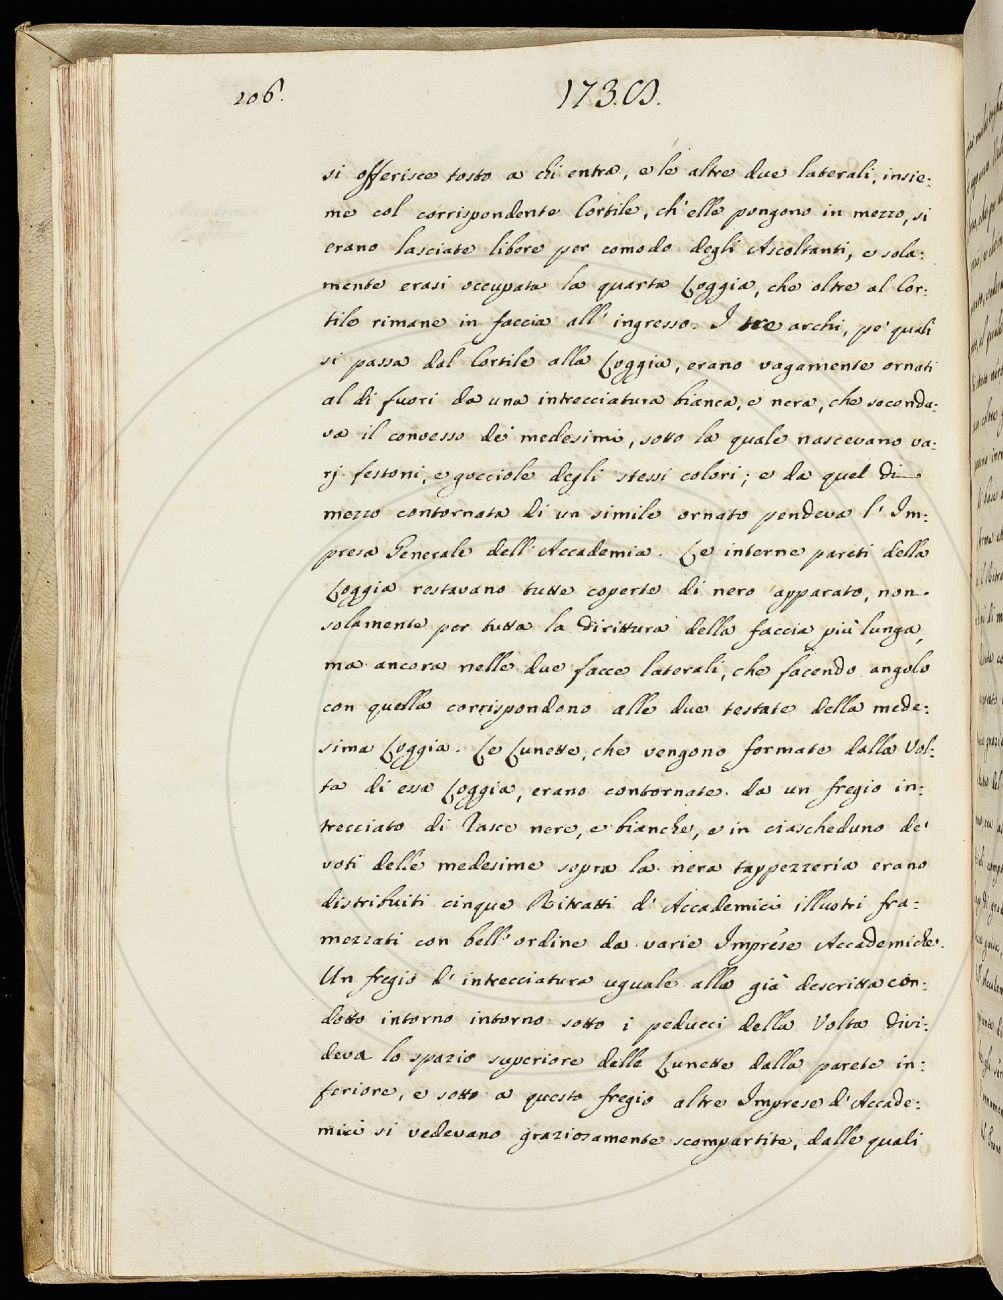 206.
173.
si offerisce tosto a chi entra, e le altre due laterali, insie:
me col corrispondente Cortile, ch'elle pongono in mezzo, si
erano lasciate libere per comodo degli Ascoltanti, e sola:
mente erasi occupata la quarta Loggia, che oltre al Cor:
tile rimane in faccia all' ingresso. I tre archi, pe' quali
si passa dal Cortile alla Loggia, erano vagamente ornati
al di fuori da una intrecciatura bianca, e nera, che seconda:
va il convesso de' medesimi, sotto la quale nascevano va:
rj festoni, e gocciole degli stessi colori; e da quel di
mezzo contornata di un simile ornato pendeva l' Im:
presa Generale dell' Accademia. Le interne pareti della
Loggia restavano tutte coperte di nero apparato, non
solamente per tutta la dirittura della faccia più lunga,
ma ancora nelle due facce laterali, che facendo angolo
con quella corrispondono alle due testate della mede:
sima Loggia. Le Lunette, che vengono formate dalla Vol:
ta di essa Loggia, erano contornate da un fregio in:
trecciato di fasce nere, e bianche, e in ciascheduno de'
voti delle medesime sopra la nera tappezzeria erano
distribuiti cinque Ritratti d' Accademici illustri fra:
mezzati con bell' ordine da varie Imprese Accademiche.
Un fregio d' intrecciatura uguale alla già descritta con:
dotto intorno intorno sotto i peducci della Volta divi:
deva lo spazio superiore delle Lunette dalla parete in:
feriore, e sotto a questo fregio altre Imprese d' Accade:
mici si vedevano graziosamente scompartite, dalle quali